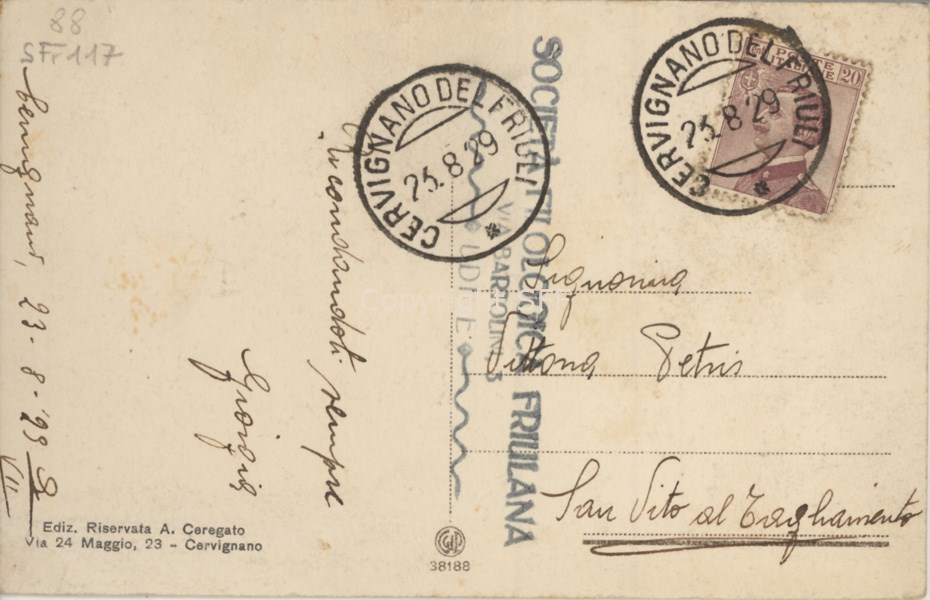 88
SFF 117
Cervignano, 23-8-'29
VII
Ricordandoti sempre
Giorgio
Ediz. Riservata A. Ceregato
Via 24 Maggio, 23 - Cervignano
CERVIGNANO DEL FRIULI
23.8.29
SOCIETÀ FILOLOGICA FRIULANA
VIA BARTOLINI, 3
UDINE
38188
CERVIGNANO DEL FRIULI
23.8.29
POSTE
ITALIANE
20
Signorina
Vittoria Petris
San Vito al Tagliamento